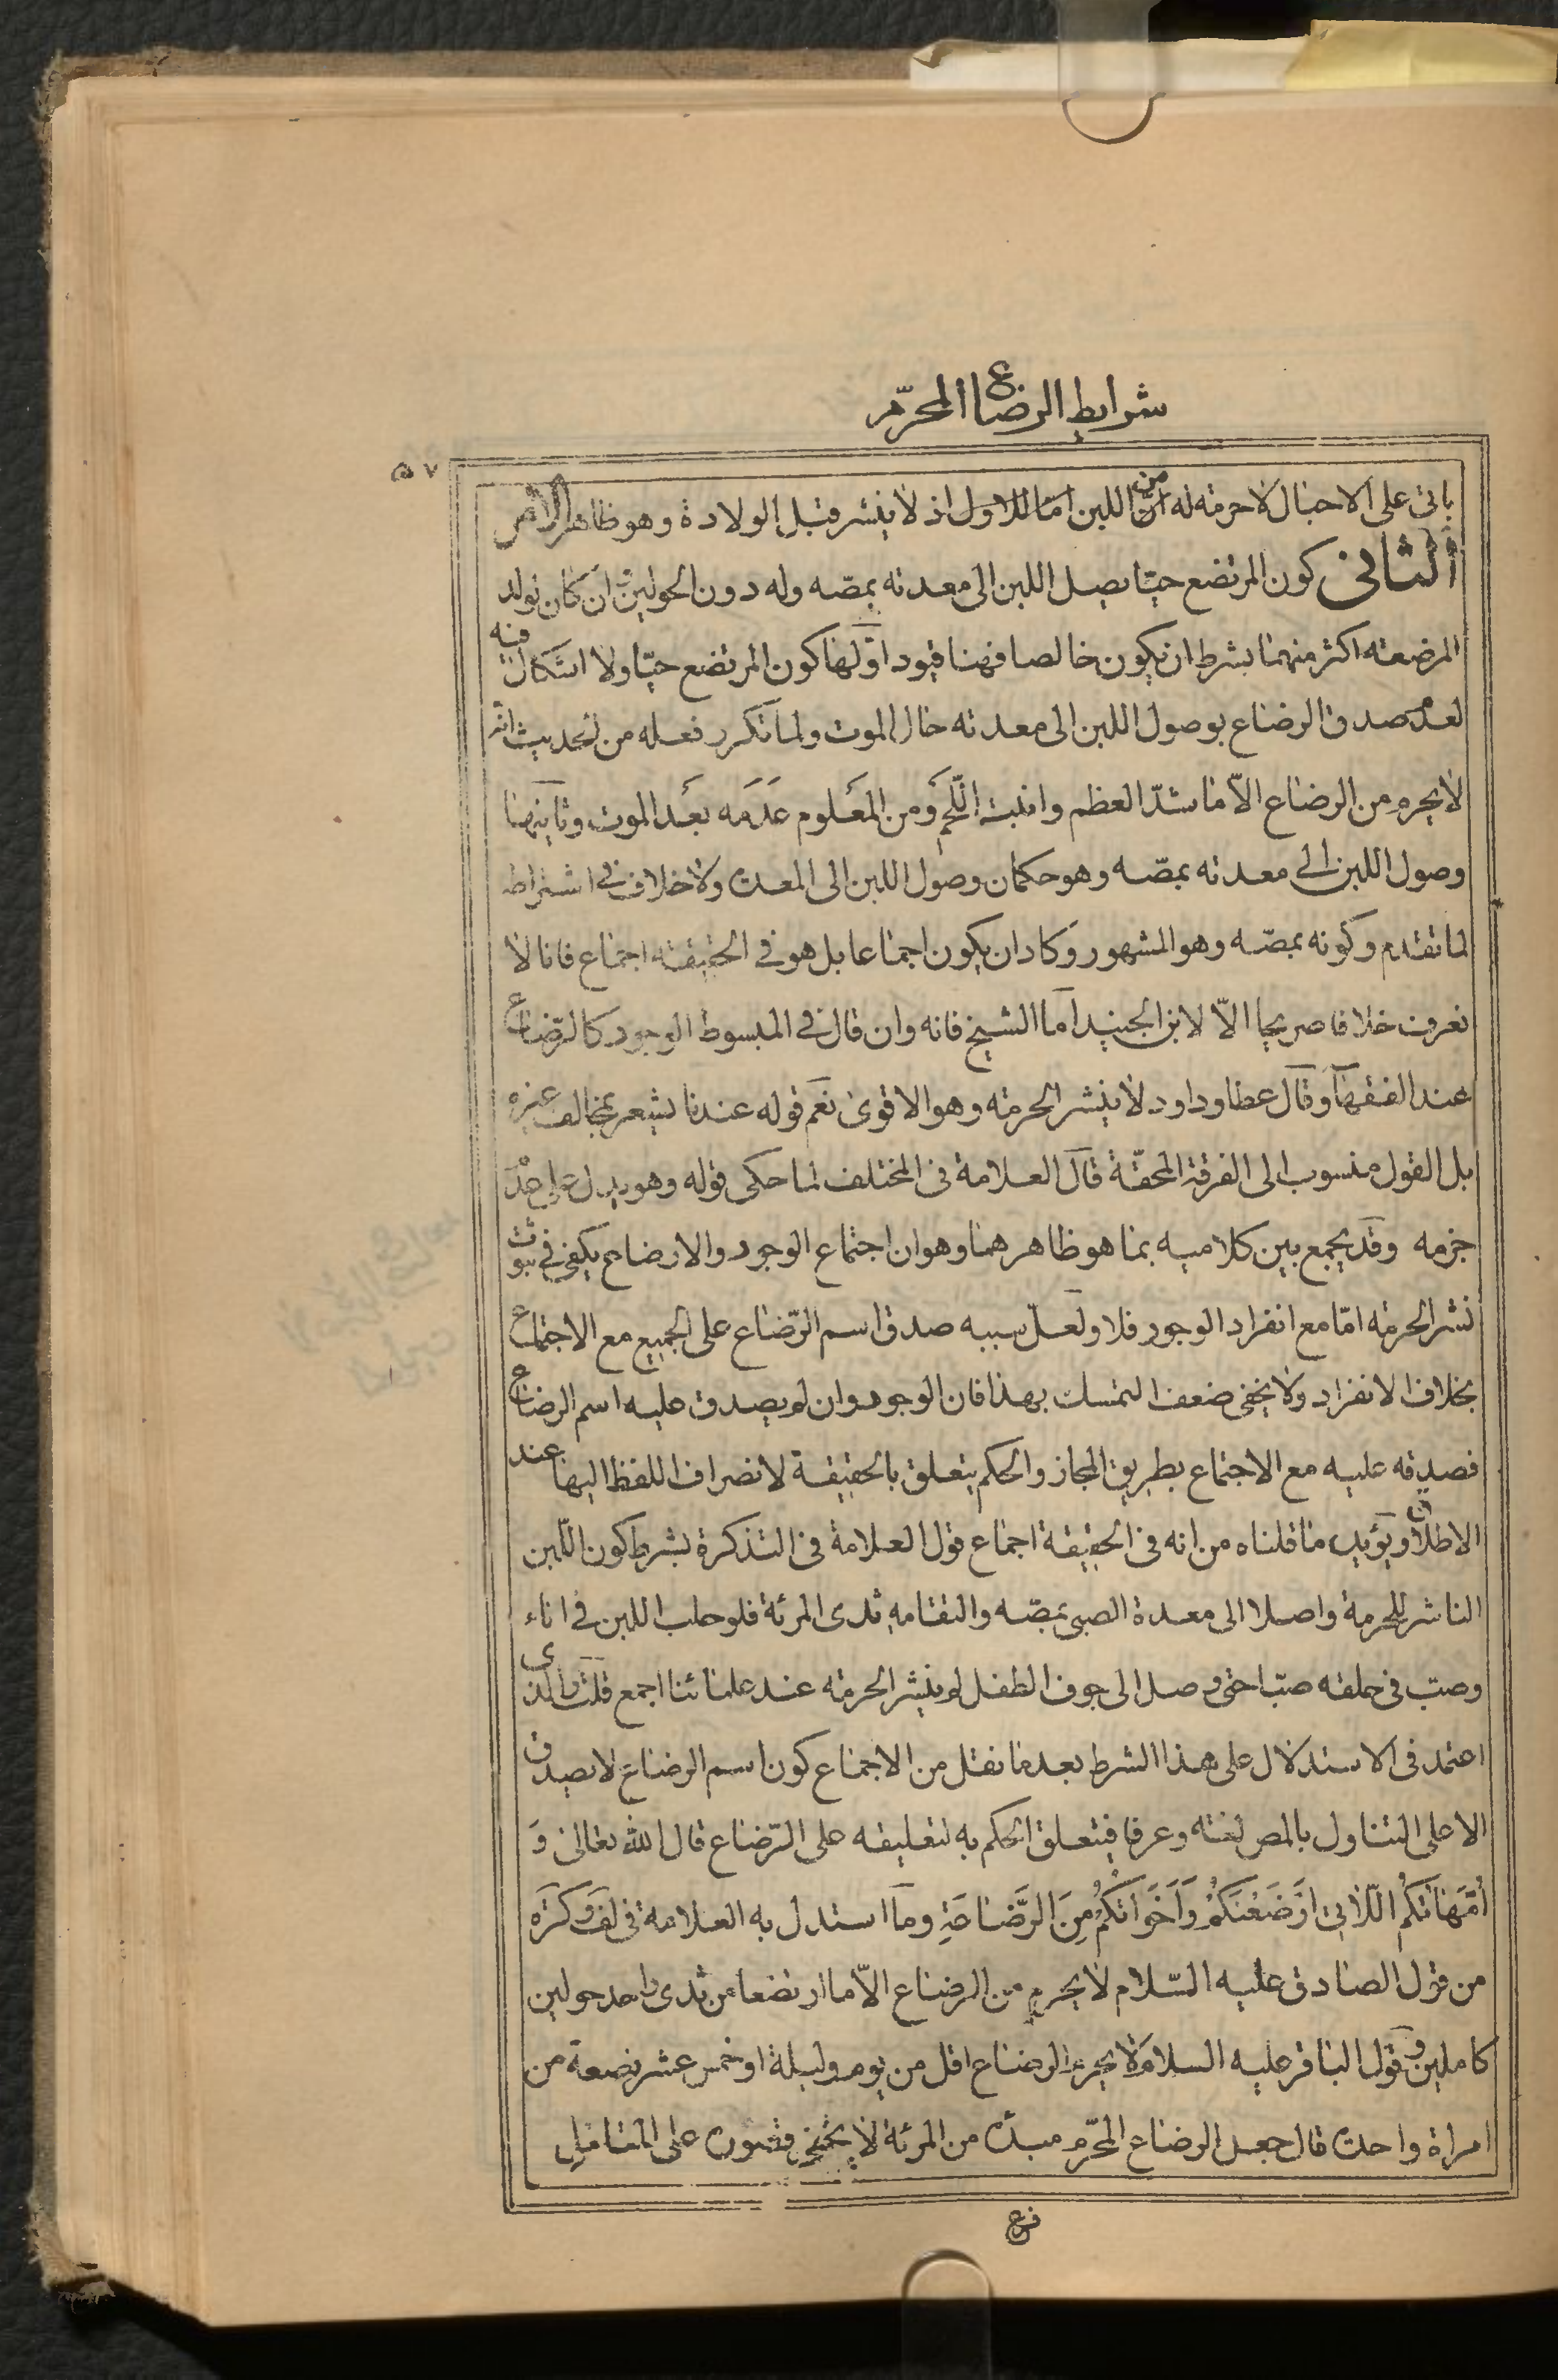 شرايط الرضاع المحرّم
۵۷
ياتى على الاحبال لا حرمة له من اللبن امّا للاول اذ لا ينشر قبل الولادة وهو ظاهر
الثانى كون المرتضع حيّا يصل اللبن الى معدته بمصّه وله دون الحولين وان كان لولد
المرضعة اكثر منهما بشرط ان يكون خالصا فهنا قيود اوّلها كون المرتضع حيّا ولا اشكال فيه
لعدم صدق الرضاع بوصول اللبن الى معدته حال الموت ولما تكرر نقله من تحديث انّه
لا يحرم من الرضاع الاّ ما شدّ العظم وانبت اللّحم ومن المعلوم عدمه بعد الموت وثانيها
وصول اللبن الى معدته بمصّه وهو حكمان وصول اللبن الى المعدة ولا خلاف فى اشتراطه
لما تقدم وكونه بمصّه وهو المشهور وكاد ان يكون اجماعا بل هو فى الحقيقة اجماع فانا لا
نعرف خلافا صريحا الاّ لابن الجنيد اما الشيخ فانه وان قال فى المبسوط الوجور كالرّضاع
عند الفقهآء وقال عطا وداود لا ينشر الحرمة وهو الاقوى نعم قوله عندنا يشعر بمخالف غيره
بل القول منسوب الى الفرقة المحقّة قال العلامة فى المختلف لما حكى قوله وهو يدل على عدم
جزمه وقد يجمع بين كلاميه بما هو ظاهر هنا وهو ان اجتماع الوجور والارضاع يكفى فى ثبوت
نشر الحرمة امّا مع انفراد الوجور فلا ولعلّ سببه صدق اسم الرّضاع على الجميع مع الاجتماع
بخلاف الانفراد ولا يخفى ضعف التمسك بهذا فان الوجور وان لم يصدق عليه اسم الرضاع
فصدقه عليه مع الاجتماع بطريق المجاز والحكم يتعلق بالحقيقة لانصراف اللفظ اليها عند
الاطلاق ويؤيد ما قلناه من انه فى الحقيقة اجماع قول العلامة فى التذكرة يشترط كون اللّبن
الناشر للحرمة واصلا الى معدة الصبى بمصّه والتقامه ثدى المرئة فلو حلب اللبن فى اناء
وصبّ فى حلقه صبّا حتى وصل الى جوف الطفل لم ينشر الحرمة عند علمائنا اجمع قلت والذى
اعتمد فى الاستدلال على هذا الشرط بعد ما نقل من الاجماع كون اسم الرضاع لا يصدق
الا على التناول بالمص لغة وعرفا فيتعلق الحكم به لتعليقه على الرّضاع قال الله تعالى وَ
أُمَّهَاتُكُمُ اللَّاتِى اَرْضَعْنَكُمْ وَاَخَوَاتُكُمْ مِنَ الرَّضَاعَةِ وما استدل به العلامة فى لف وكره
من قول الصادق عليه السّلام لا يحرم من الرضاع الاّ ما ارتضعا من ثدى واحد حولين
كاملين وقول الباقر عليه السلام لا يحرم الرضاع اقل من يوم وليلة او خمس عشر رضعة من
امراة واحدة قال جعل الرضاع المحرّم مبدئه من المرئة لا يخفى على المتأمّل
فرع